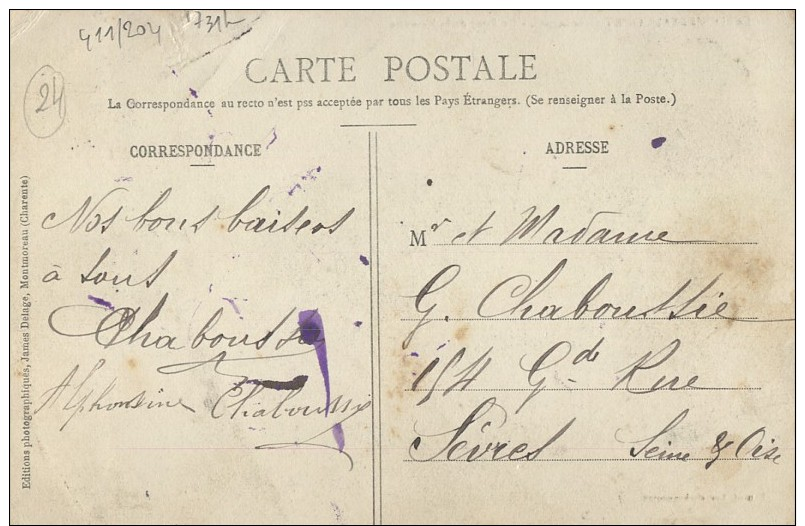 411/204 731L
24
CARTE POSTALE
La Correspondance au recto n'est pss acceptée par tous les Pays Étrangers. (Se renseigner à la Poste.)
CORRESPONDANCE
Nos bons baisers
à tous
Chaboussie
Alphonsine Chaboussie
ADRESSE
Mr et Madame
G. Chaboussie
154 Gde Rue
Sèvres Seine & Oise
Editions photographiques, James Delage, Montmoreau (Charente)